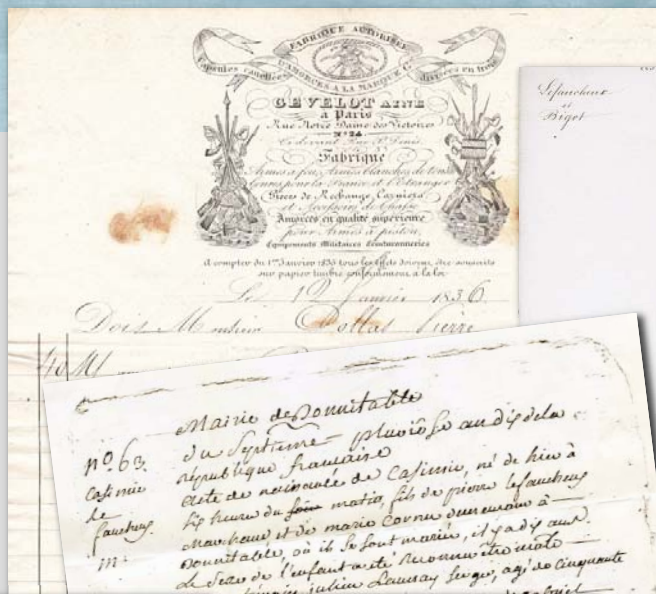 FABRIQUE AUTORISÉE
Capsules cannelées
D'AMORCES A LA MARQUE G.
GEVELOT AINÉ
à Paris
Rue Notre Dame des Victoires
N.º 24.
Ci-devant Rue S.t Denis
Fabrique
Armes à feu, Armes blanches de tous
genres pour la France et l'Etranger
Pièces de Rechange, Carniers
et Accessoires de Chasse
Amorces en qualité supérieure
pour Armes à piston,
Equipements Militaires Ceinturonneries
A compter du 1.er Janvier 1835 tous les effets doivent être souscrits
sur papier timbré conformément à la loi
Le 12 Janvier 1836
Doit Monsieur Pierre
Lefaucheux
et
Bigot
Mairie de Bonnétable
n.º 63.
Du Septième pluviose an dix de la
république française
Casimir
le
faucheux
Acte de naissance de Casimir, né de hier à
six heure du soir matin, fils de pierre lefaucheux
Marchand et de marie Cornu demeurant à
Bonnétable, où ils se sont mariés, il y a dix ans.
Le Sexe de l'enfant a été reconnu être mâle
julien Launay Serger, agé de Cinquante